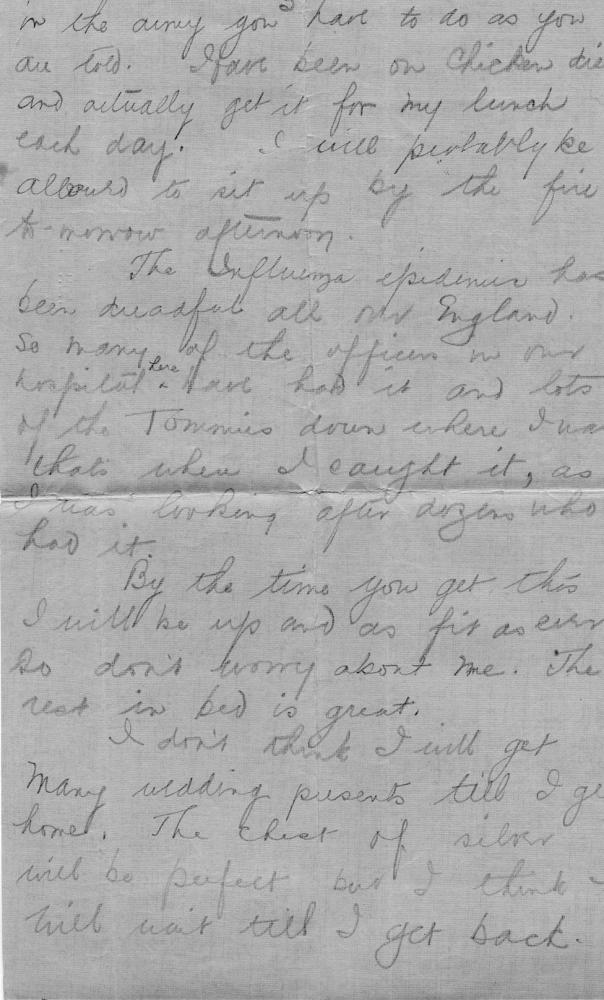 in the army you have to do as you
are told. I have been on Chicken die
and actually get it for my lunch
each day. I will probably be
allowed to sit up by the fire
to-morrow afternoon.
The Influenza epidemic has
been dreadful all over England.
So many of the officers in our
hospital here have had it and lots
of the Tommies down where I wa
thats when I caught it, as
I was looking after dozens who
had it.
By the time you get this
I will be up and as fit as ever
So don't worry about me. The
rest in bed is great.
I don't think I will get
many wedding presents till I ge
home. The chest of silver
will be perfect but I think
will wait till I get back.